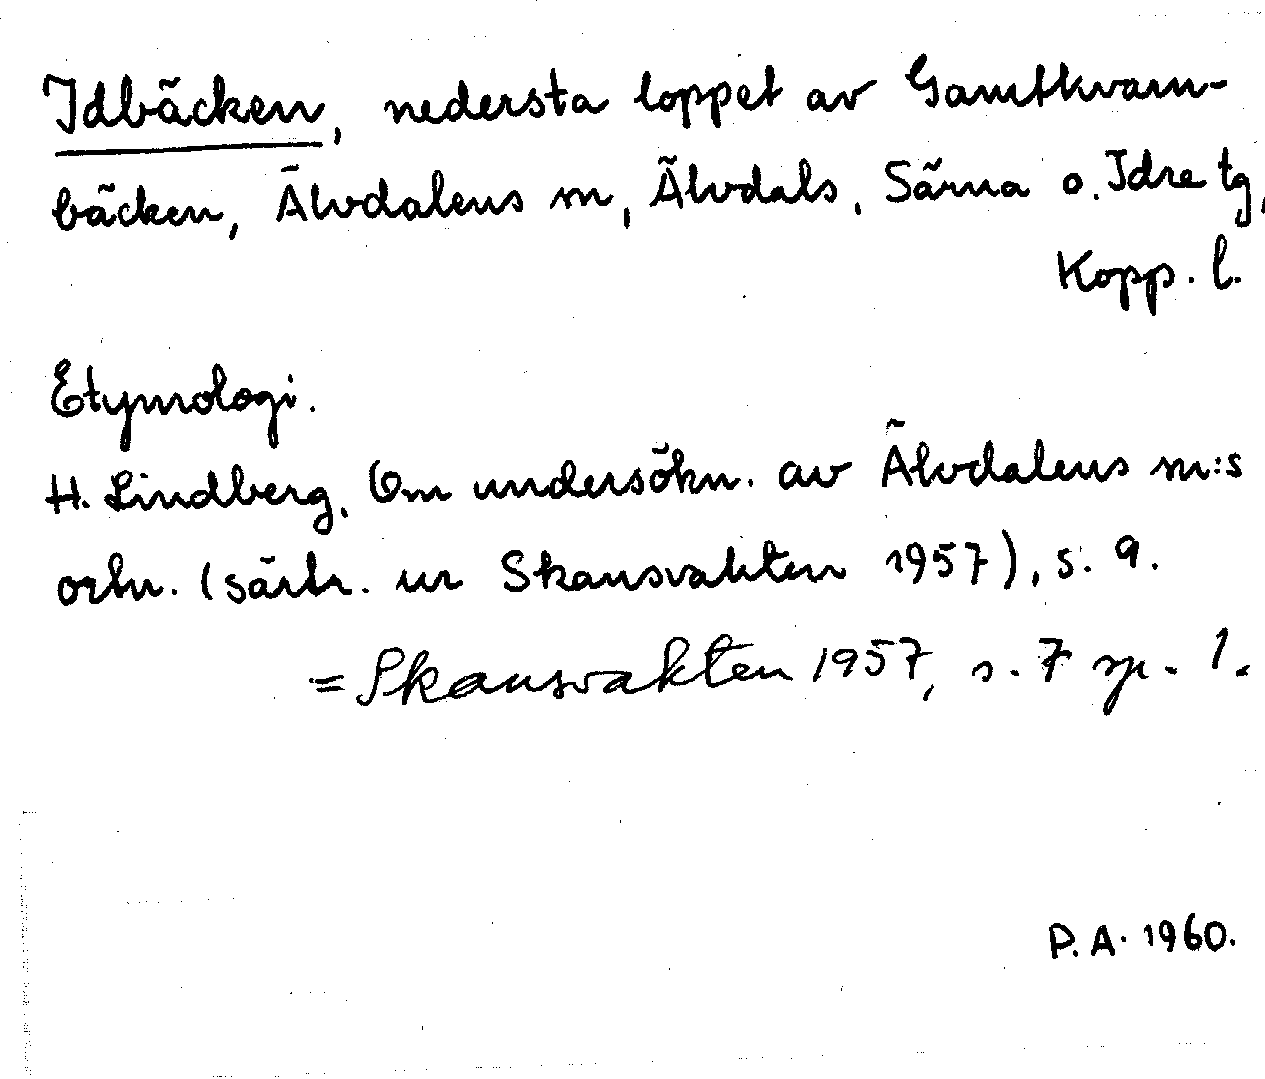 Idbäcken, nedersta loppet av Gamtkvarn-
bäcken, Älvdalens m, Älvdals, Särna o. Idre tg,
Kopp. l.
Etymologi.
H. Lindberg, Om undersökn. av Älvdalens m:s
ortn. (särtr. ur Skansvakten 1957), s. 9.
= Skansvakten 1957, s. 7 sp. 1.
P. A. 1960.